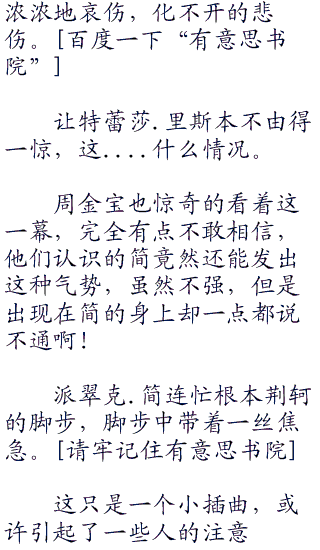 浓浓地哀伤，化不开的悲
伤。[百度一下“有意思书
院”]
让特蕾莎.里斯本不由得
一惊，这....什么情况。
周金宝也惊奇的看着这
一幕，完全有点不敢相信，
他们认识的简竟然还能发出
这种气势，虽然不强，但是
出现在简的身上却一点都说
不通啊！
派翠克.简连忙根本荆轲
的脚步，脚步中带着一丝焦
急。[请牢记住有意思书院]
这只是一个小插曲，或
许引起了一些人的注意